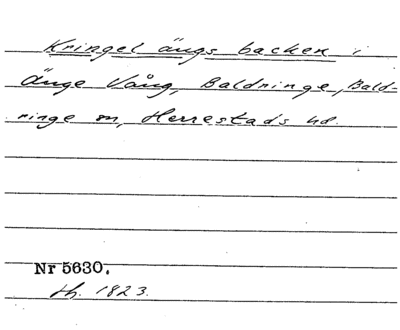 Kringel ängs backen i
Änge Vång, Baldringe, Bald-
ringe sn, Herrestads hd.
Nr 5630.
th. 1823.